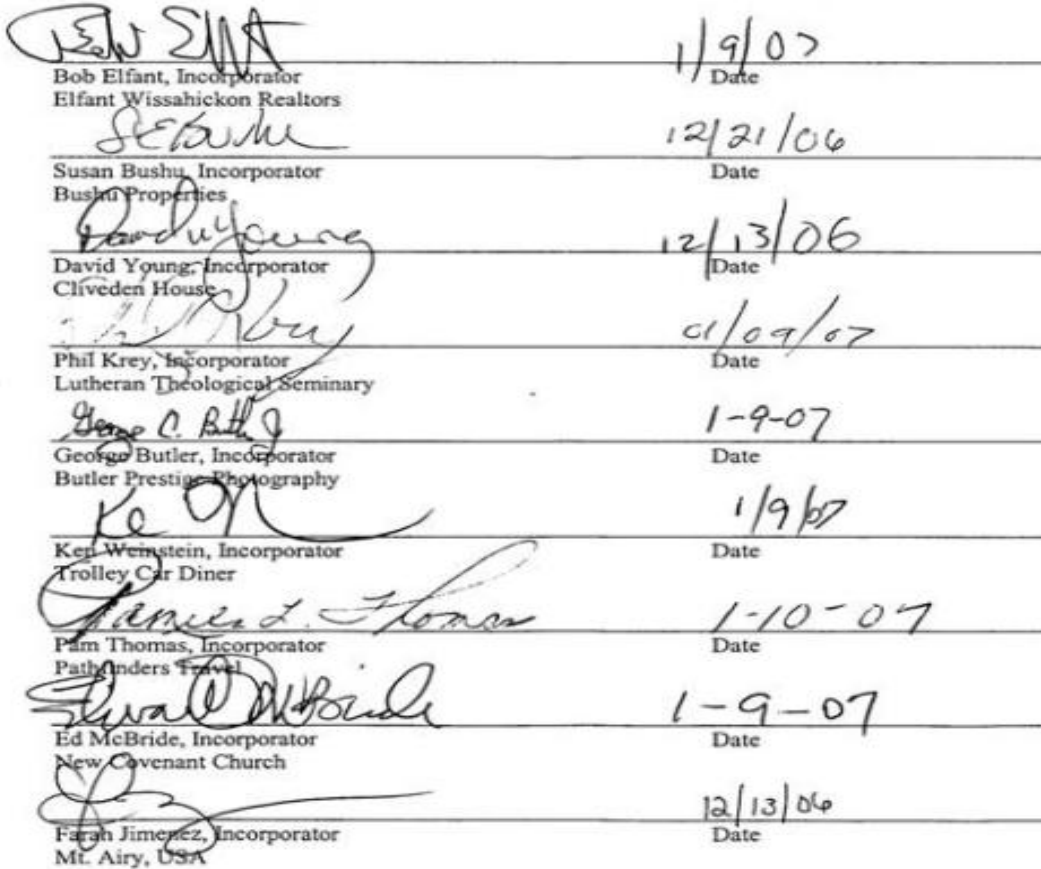 1/9/07
Bob Elfant, Incorporator Date
Elfant Wissahickon Realtors
12/21/06
Susan Bushu, Incorporator Date
Bushu Properties
David Young 12/13/06
David Young, Incorporator Date
Cliveden House
Krey 01/09/07
Phil Krey, Incorporator Date
Lutheran Theological Seminary
George C. Butler Jr 1-9-07
George Butler, Incorporator Date
Butler Prestige Photography
1/9/07
Ken Weinstein, Incorporator Date
Trolley Car Diner
Pamela L. Thomas 1-10-07
Pam Thomas, Incorporator Date
Pathfinders Travel
Edward McBride 1-9-07
Ed McBride, Incorporator Date
New Covenant Church
12/13/06
Farah Jimenez, Incorporator Date
Mt. Airy, USA